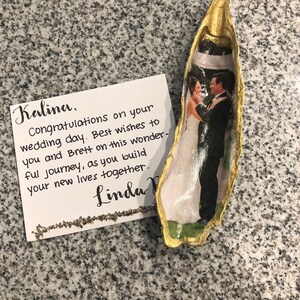 Kalina,
Congratulations on your
wedding day. Best wishes to
you and Brett on this wonder-
ful journey, as you build
your new lives together.
Linda